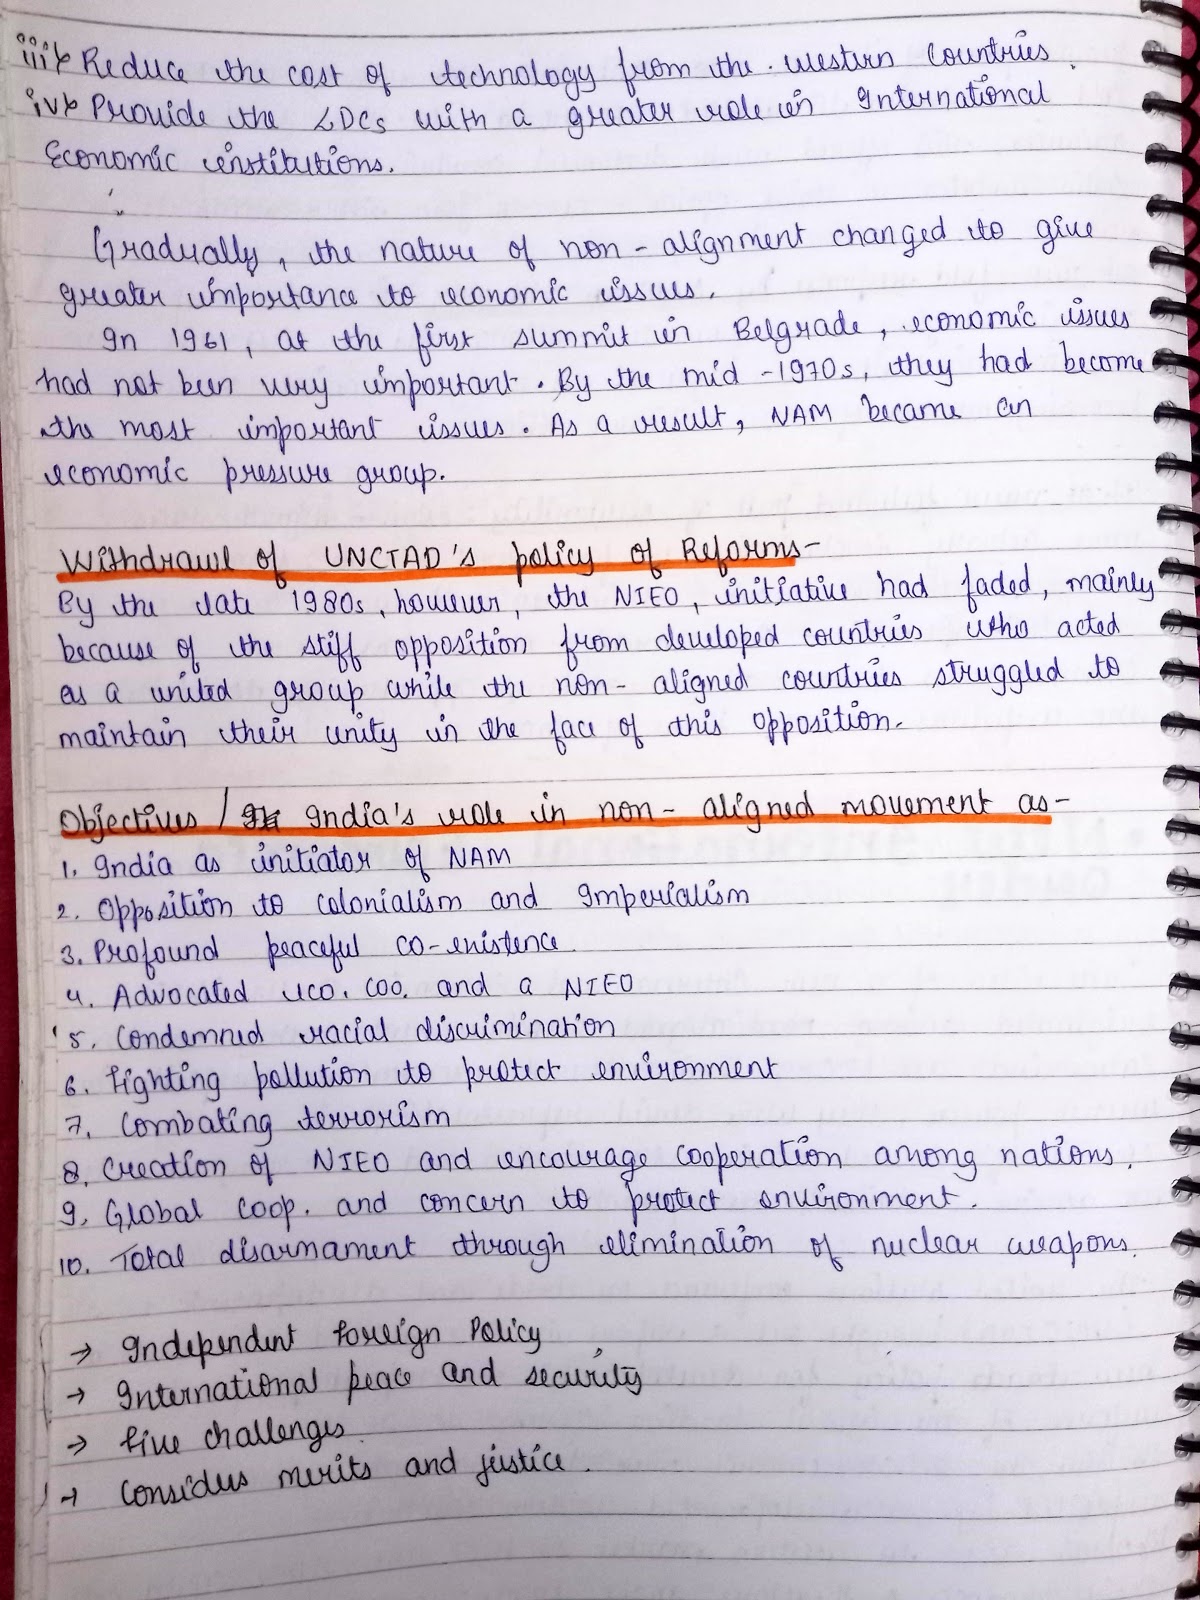 iii) Reduce the cost of technology from the western countries.
iv) Provide the LDCs with a greater role in International
Economic institutions.
Gradually, the nature of non-alignment changed to give
greater importance to economic issues.
In 1961, at the first summit in Belgrade, economic issues
had not been very important. By the mid-1970s, they had become
the most important issues. As a result, NAM became an
economic pressure group.
Withdrawl of UNCTAD's policy of Reforms-
By the late 1980s, however, the NIEO, initiative had faded, mainly
because of the stiff opposition from developed countries who acted
as a united group while the non-aligned countries struggled to
maintain their unity in the face of this opposition.
Objectives / India's role in non-aligned movement as-
1. India as initiator of NAM
2. Opposition to colonialism and Imperialism
3. Profound peaceful co-existence
4. Advocated eco. coo. and a NIEO
5. Condemned racial discrimination
6. Fighting pollution to protect environment
7. Combating terrorism
8. Creation of NIEO and encourage cooperation among nations.
9. Global coop. and concern to protect environment.
10. Total disarmament through elimination of nuclear weapons.
→ Independent foreign Policy
→ International peace and security
→ five challenges
→ Considers merits and justice.